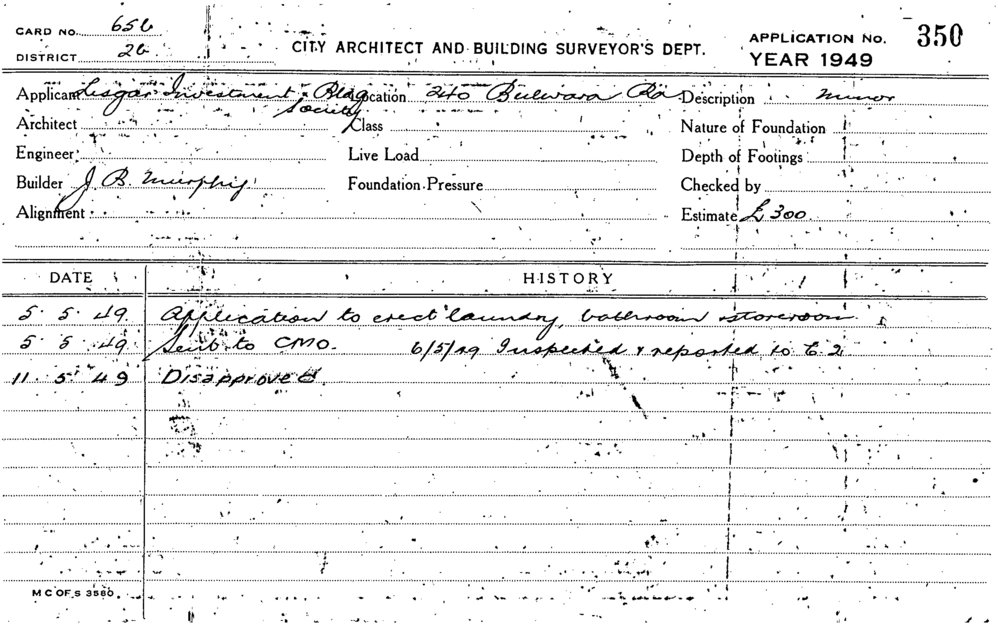 CARD NO. 656
DISTRICT 26
CITY ARCHITECT AND BUILDING SURVEYOR'S DEPT.
APPLICATION NO. 350
YEAR 1949
Applicant Lisgar Investment & Bldg Society Location 240 Bulwara Rd Description minor
Architect Class Nature of Foundation
Engineer Live Load Depth of Footings
Builder J. B. Murphy Foundation Pressure Checked by
Alignment Estimate £300
DATE HISTORY
5. 5. 49. Application to erect laundry, bathroom storeroom
5 5 49 Sent to CMO. 6/5/49 Inspected & reported to C. 2
11. 5. 49 Disapproved.
M C OF S 3580